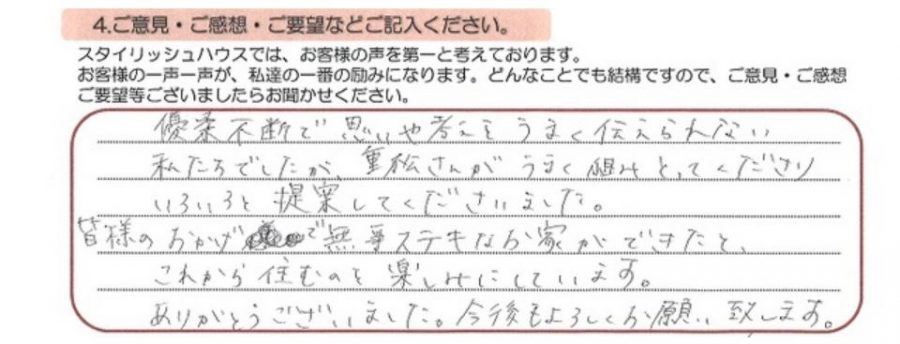 4.ご意見・ご感想・ご要望などご記入ください。
スタイリッシュハウスでは、お客様の声を第一と考えております。
お客様の一声一声が、私達の一番の励みになります。どんなことでも結構ですので、ご意見・ご感想
ご要望等ございましたらお聞かせください。
優柔不断で思いや考えをうまく伝えられない
私たちでしたが、重松さんがうまく組みとってくださり
いろいろと提案してくださいました。
皆様のおかげで無事ステキなお家ができたと、
これから住むのを楽しみにしています。
ありがとうございました。今後もよろしくお願い致します。